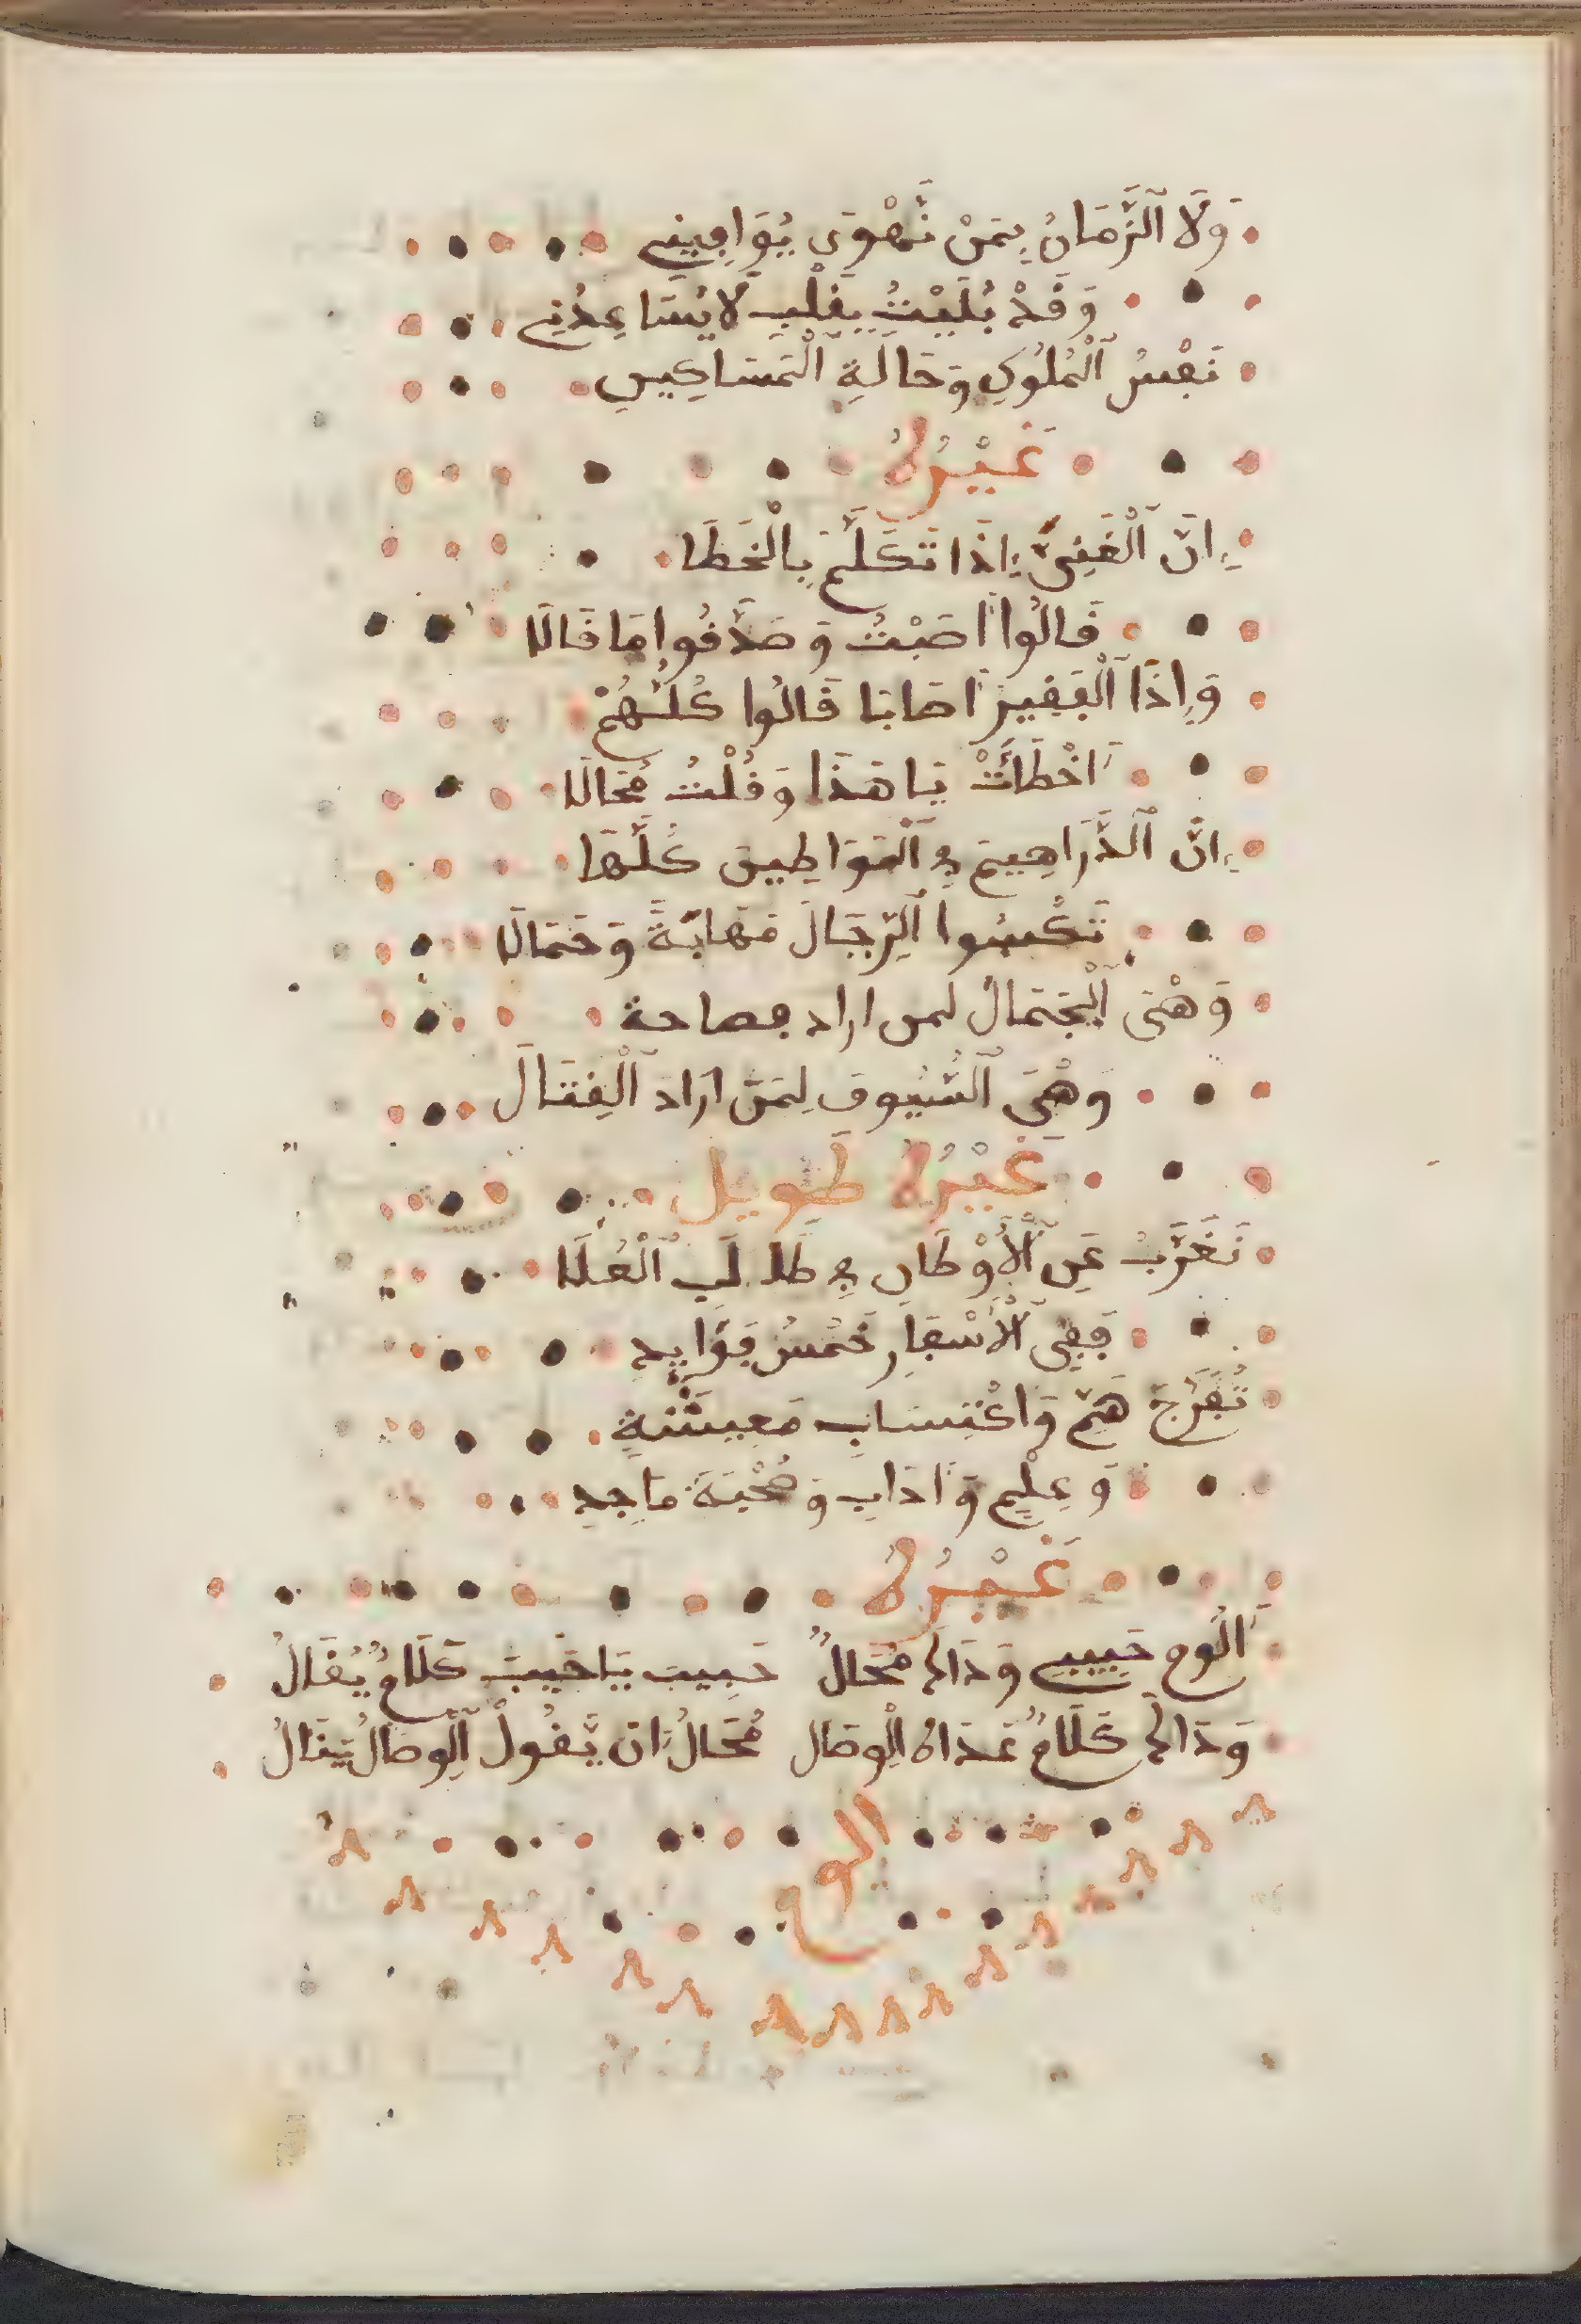 وَلَا ٱلزَّمَانُ بِمَنْ نَّهْوَى يُوَافِينِي
وَقَدْ بُلِيْتُ بِقَلْبِ لَا يُسَاعِدُنِي
نَفْسُ ٱلْمُلُوكِ وَحَالَةِ ٱلْمَسَاكِينِ
غَيْرُهُ
اِنَّ ٱلْغَنِيَّ اِذَا تَكَلَّمَ بِالْخَطَا
قَالُوا اَصَبْتُ وَصَدَّقُوا مَا قَالَا
وَإِذَا ٱلْفَقِيرُ اَصَابَا قَالُوا كُلُّهُمْ
اَخْطَأْتَ يَا هَذَا وَقُلْتُ مُحَالَا
اِنَّ ٱلدَّرَاهِيمَ فِي ٱلْمَوَاطِينَ كُلَّهَا
تَكْسُوا ٱلرِّجَالَ مَهَابَةً وَجَمَالَا
وَهْيَ ٱلْجَمَالُ لمن اراد فصاحة
وَهْيَ ٱلسُّيُوفِ لِمَنَ ارَادَ ٱلْقِتَالَ
غَيْرُهُ طَويل
تَغَرَّبْ عَنِ ٱلْأَوْطَانِ فِي طَلَبِ ٱلْعُلَا
فَفِي ٱلْأَسْفَارِ خَمْسُ فَوَايِدِ
تُفَرِّجَ هَمِّ وَاكْتِسَابِ مَعِيشَةٍ
وَعِلْمٍ وَاَدَابِ وَصُحْبَةَ مَاجِدِ
غَيْرُهُ
اَلُومُ حَبِيبِي وَذَاكَ مُحَالٌ حَبِيبَ يَا حَبِيبَ كَلَامٌ يُقَالُ
وَذَاكَ كَلَامٌ عَدَاهُ الْوِصَال مُحَالُ اَنْ يَّقُولْ ٱلْوِصَالُ يَنَالُ